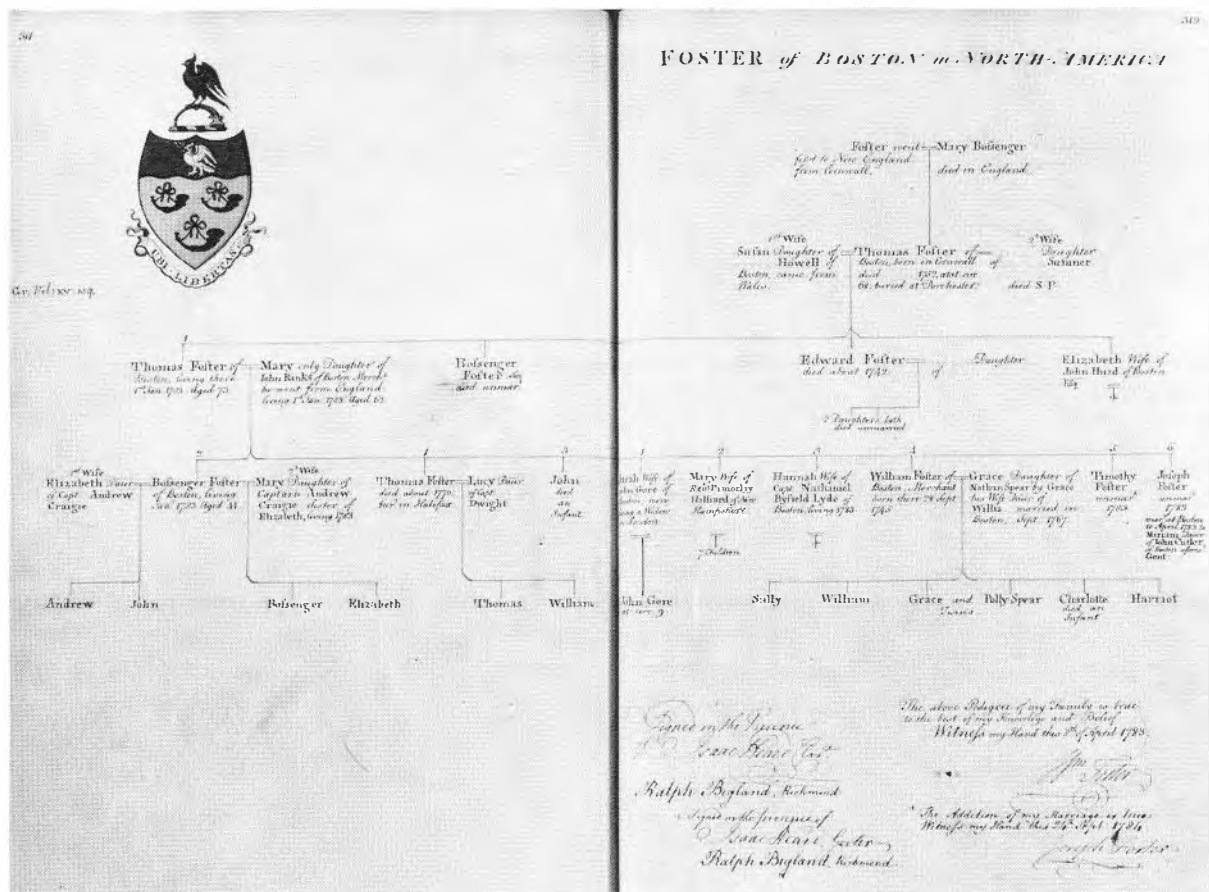 349
FOSTER of BOSTON in NORTH-AMERICA
UBI · LIBERTAS
Foster went
first to New England
from Cornwall.
Mary Boſsenger
died in England
1st Wife
Susan Daughter of
Howell of
Boston, came from
Wales.
Thomas Foster of
Boston, born in Cornwall
died 1752, aetat.
buried at Dorchester.
2d Wife
Daughter
of Sumner
died S P
Thomas Foster of
Boston, living there
1st Jan. 1783. Aged 73.
Mary only Daughter of
John Banks of Boston
he went from England
living 1st Jan. 1783. Aged 62.
Boſsenger
Foster
died unmar.
Edward Foster
died about 1742.
Daughter
of
Elizabeth Wife of
John Hurd of Boston
Esq.
2 Daughters both
died unmarried
2
1
3
1
2
3
4
5
6
1st Wife
Elizabeth
of Capt. Andrew
Craigie
Boſsenger Foster
of Boston, living
Jan. 1783 Aged
2d Wife
Mary Daughter of
Captain Andrew
Craigie sister of
Elizabeth, living 1783
Thomas Foster
died about 1770.
bur. in Halifax
Lucy
of Capt.
Dwight
John
died
an
Infant
Wife of
John Gore of
Boston, now
a Widow
Mary Wife of
Revd Timothy
Hilliard of New
Hampshire
7 Children
Hannah Wife of
Capt. Nathaniel
Byfield Lyde of
Boston, living 1783.
William Foster of
Boston, Merchant
born there 28 Sept.
1745
Grace Daughter of
Nathan Spear by Grace
his Wife
Willis married in
Boston, Sept. 1767.
Timothy
Foster
unmard
1783
Joseph
Foster
unmard
1783
mar. at Boston
April 1784 to
Miriam
of John Cutler,
of Boston
Gent.
Andrew
John
Boſsenger
Elizabeth
Thomas
William
John Gore
Sally
William
Grace and
Twins
Polly Spear
Charlotte
died an
Infant
Harriot
Signed in the Presence
of
Isaac Heard
Ralph Bigland, Richmond
Signed in the presence of
Isaac Heard, Garter
Ralph Bigland, Richmond.
The above Pedigree of my Family is true
to the best of my Knowledge and Belief
Witness my Hand this 8th of April 1783.
Wm Foster
The Addition of my Marriage is true
Witness my Hand this 24th Sept 1784
Joseph Foster